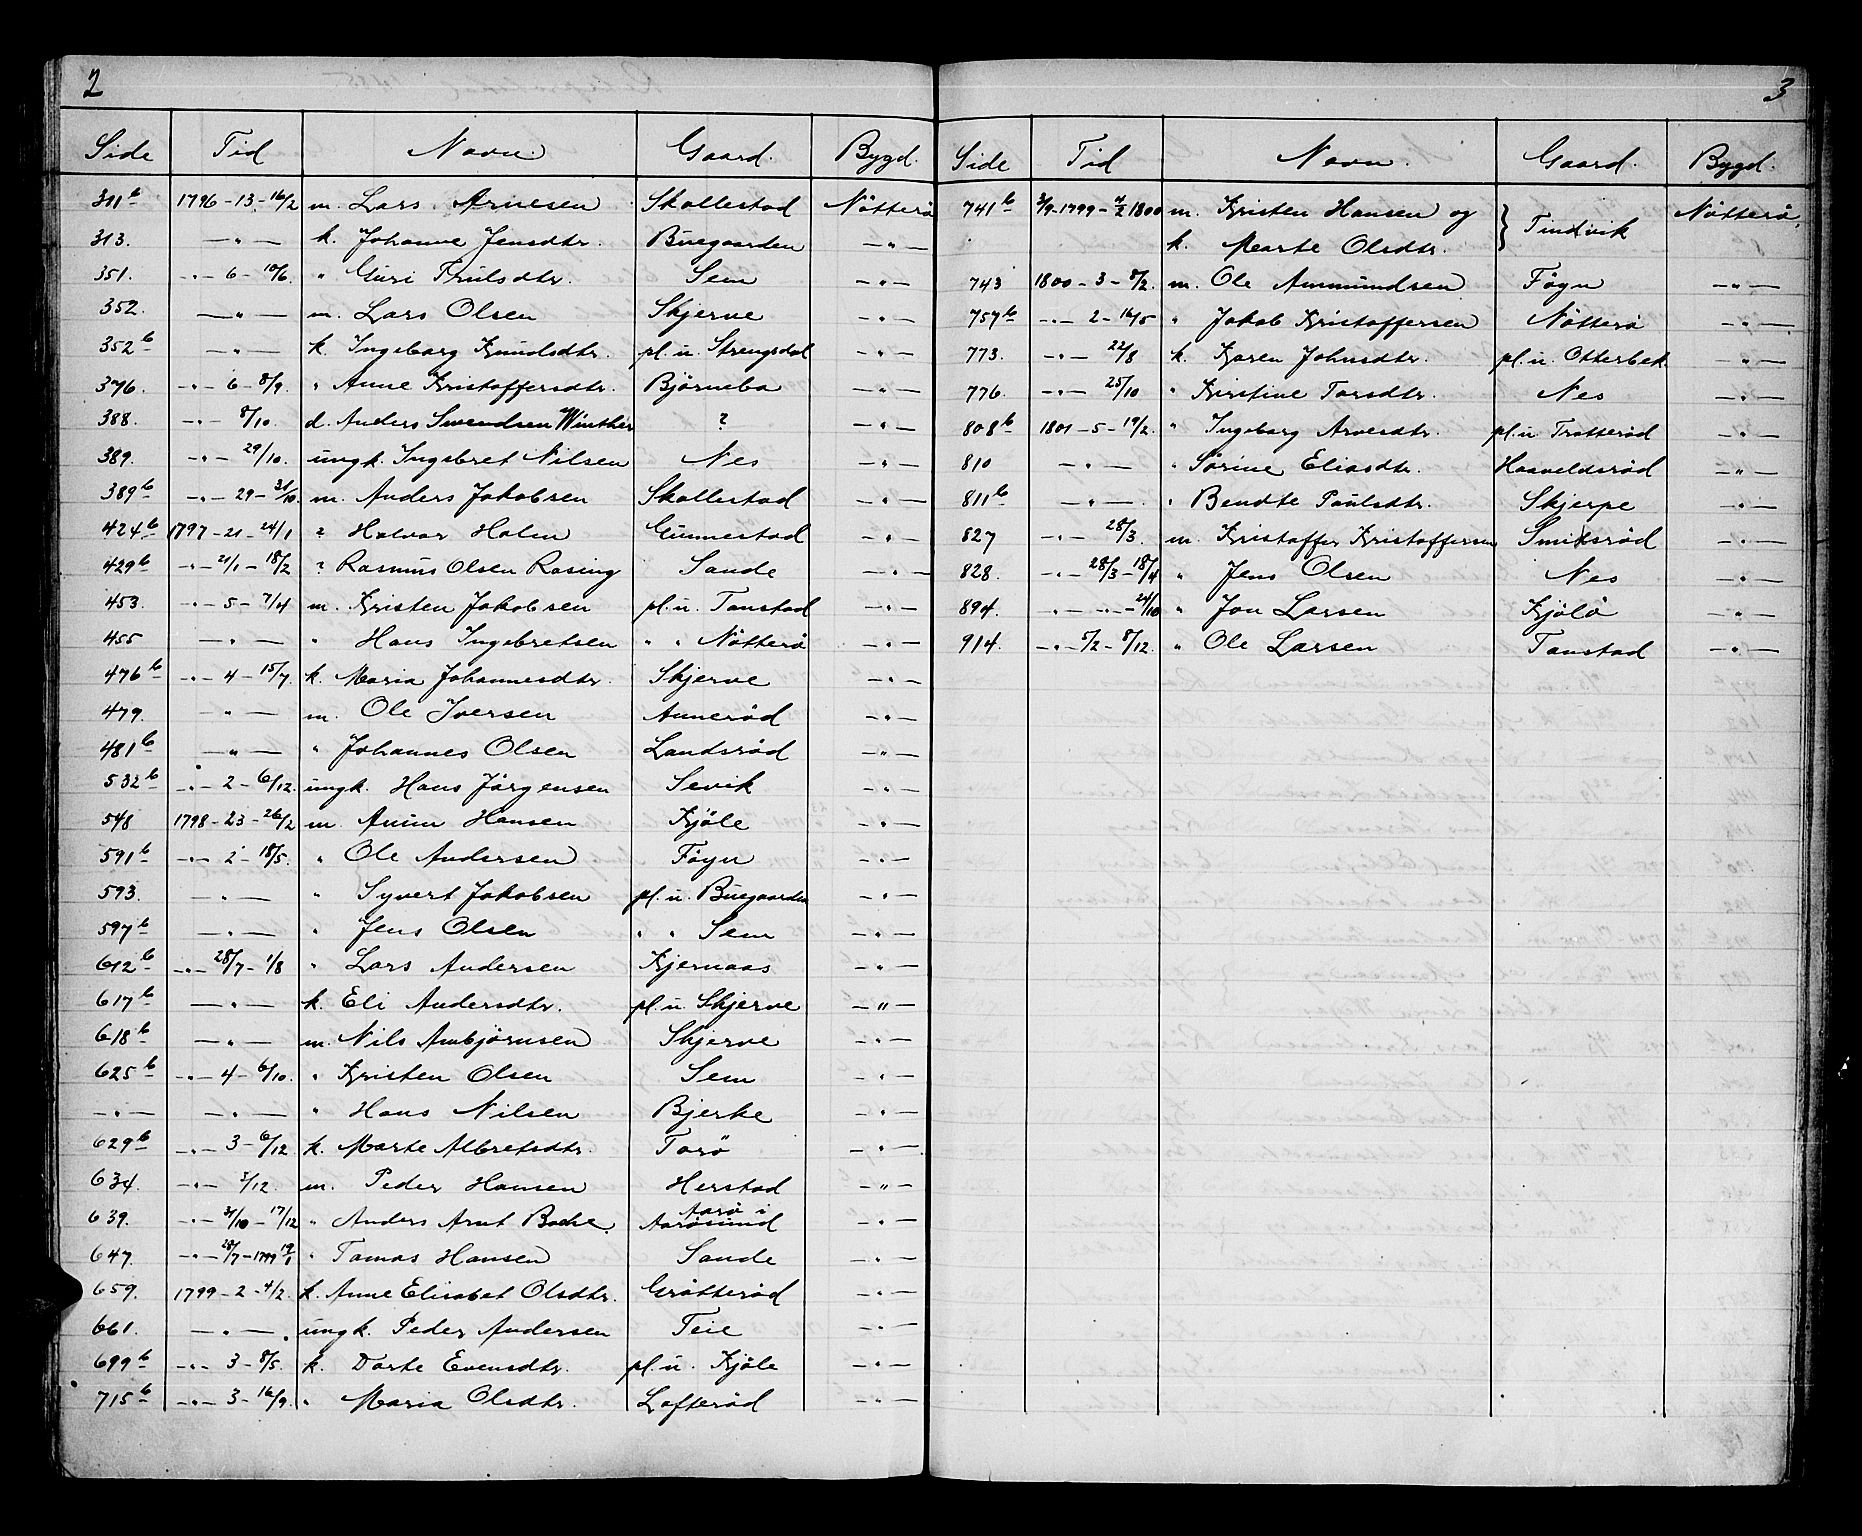 2
Side Tid Navn. Gaard. Bygd.
311b 1796-13-16/2 m. Lars Arnesen Skallestad Nötterö
313. -"- k. Johanne Jensdtr. Buegaarden -"-
351. -"- 6-10/6. " Guri Trulsdtr. Sem -"-
352. -"- m. Lars Olsen Skjerve -"-
352b -"- k. Ingeborg Knudsdtr. pl. u. Strengsdal -"-
376. -"- 6-8/9. " Anne Kristoffersdtr. Björnebo -"-
388. -"- 8/10. d. Anders Swendsen Winther ? -"-
389. -"- 29/10. ungk. Ingebret Nilsen Nes -"-
389b -"- 29-31/10. m. Anders Jakobsen Skallestad -"-
424b 1797-21-24/1 ? Halvor Holen Gunnestad -"-
429b -"- 21/1-18/2 ? Rasmus Olsen Rosing Sande -"-
453. -"- 5-7/4 m. Kristen Jakobsen pl. u. Tanstad -"-
455 -"- " Hans Ingebretsen " " Nötterö -"-
476b -"- 4-15/7. k. Maria Johannesdtr. Skjerve -"-
479. -"- m. Ole Iversen Annerød -"-
481b -"- " Johannes Olsen Landsrød -"-
532b -"- 2-6/12. ungk. Hans Jörgensen Sevik -"-
548 1798-23-26/2 m. Anun Hansen Kjöle -"-
591b -"- 2-18/5. " Ole Andersen Föyn -"-
593. -"- " Syvert Jakobsen pl. u. Buegaarden -"-
597b -"- " Jens Olsen " " Sem -"-
612b -"- 28/7-1/8 " Lars Andersen Kjernaas -"-
617b -"- k. Eli Andersdtr. pl. u. Skjerve -"-
618b -"- m. Nils Ambjørnsen Skjerve -"-
625b -"- 4-6/10. " Kristen Olsen Sem -"-
-"- -"- " Hans Nilsen Bjerke -"-
629b -"- 3-6/12. k. Marte Albretsdtr. Torö -"-
634. -"- 5/12. m. Peder Hansen Herstad -"-
639. -"- 31/10-17/12 " Anders Arnt Bache Aarö i Aarösund -"-
647. -"- 28/7-1799 19/1 " Tomas Hansen Sande -"-
659. 1799-2-4/2. k. Anne Elisabet Olsdtr. Grötteröd -"-
661. -"- ungk. Peder Andersen Teie -"-
699b -"- 3-8/5. k. Dorte Evensdtr. pl. u. Kjöle -"-
715b -"- 3-16/9. " Maria Olsdtr. Lofteröd -"-
3
Side Tid Navn. Gaard. Bygd.
741b 3/9-1799-4/2 1800 m. Kristen Hansen og Nötterö
k. Marte Olsdtr. } Tindvik
743 1800-3-8/2. m. Ole Ammundsen Föyn -"-
757b -"- 2-16/5 " Jakob Kristoffersen Nötterö -"-
773. -"- 22/8 k. Karen Johnsdtr. pl. u. Otterbek -"-
776. -"- 25/10 " Kirstine Torsdtr. Nes -"-
808b 1801-5-19/2. " Ingeborg Arvesdtr. pl. u. Trotteröd -"-
810 -"- " Sörine Eliasdtr. Haaveldsröd -"-
811b -"- " Bendte Paulsdtr. Skjerpe -"-
827 -"- 28/3. m. Kristoffer Kristoffersen Smidsröd -"-
828. -"- 28/3-18/4 " Jens Olsen Nes -"-
894. -"- -"- -24/10 " Jon Larsen Kjölö -"-
914. -"- 5/2-8/12. " Ole Larsen Tanstad -"-